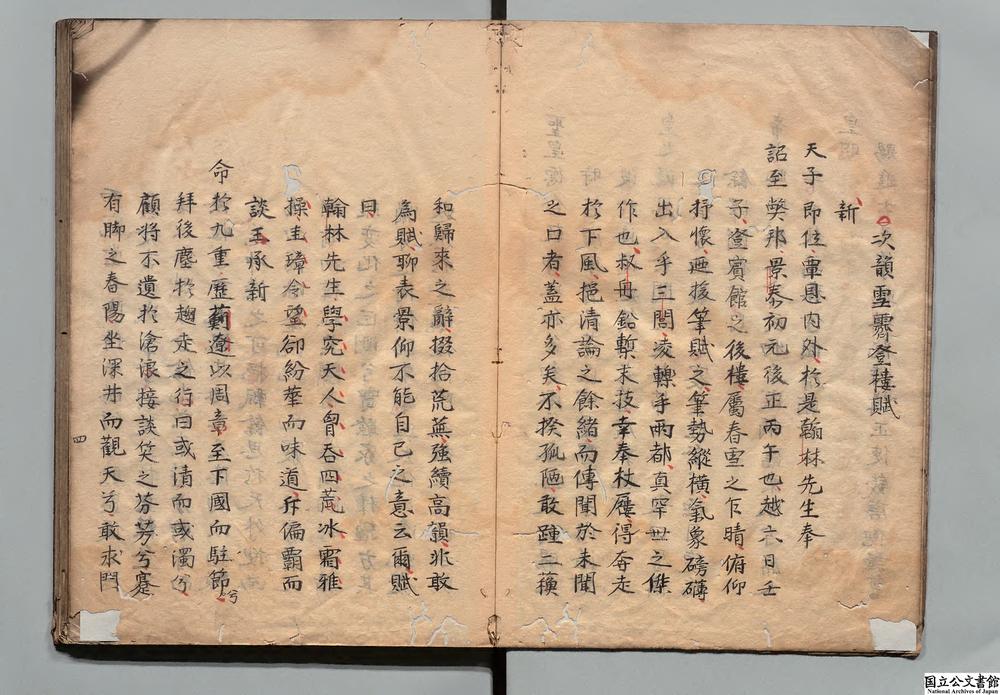 次韻雪霽登樓賦
新
天子即位覃恩内外於是翰林先生奉
詔至獘邦景泰初元後正丙午也越六日壬
子登賓館之後樓屬春雪之乍晴俯仰
抒懷迺援筆賦之筆勢縱横氣象磅礴
出入乎三閭凌轢乎兩都真罕世之傑
作也叔毋鉛槧末技幸奉杖屨得奔走
於下風挹清論之餘緒而傳聞於未聞
之口者盖亦多矣不揆孤陋敢踵二蘓
和歸來之辭掇拾荒蕪強續高韻非敢
為賦聊表景仰不能自已之意云爾賦
曰
翰林先生學究天人曾吞四荒冰霜雅
操圭璋令望卻紛華而味道斥偏覇而
談王承新
命於九重歷薊遼以周章至下國而駐節兮
拜後塵於趨走之行曰或清而或濁兮
顧將不遺於滄浪接談笑之芬芳兮蹇
有脚之春陽坐深井而觀天兮敢求門
四
国立公文書館
National Archives of Japan